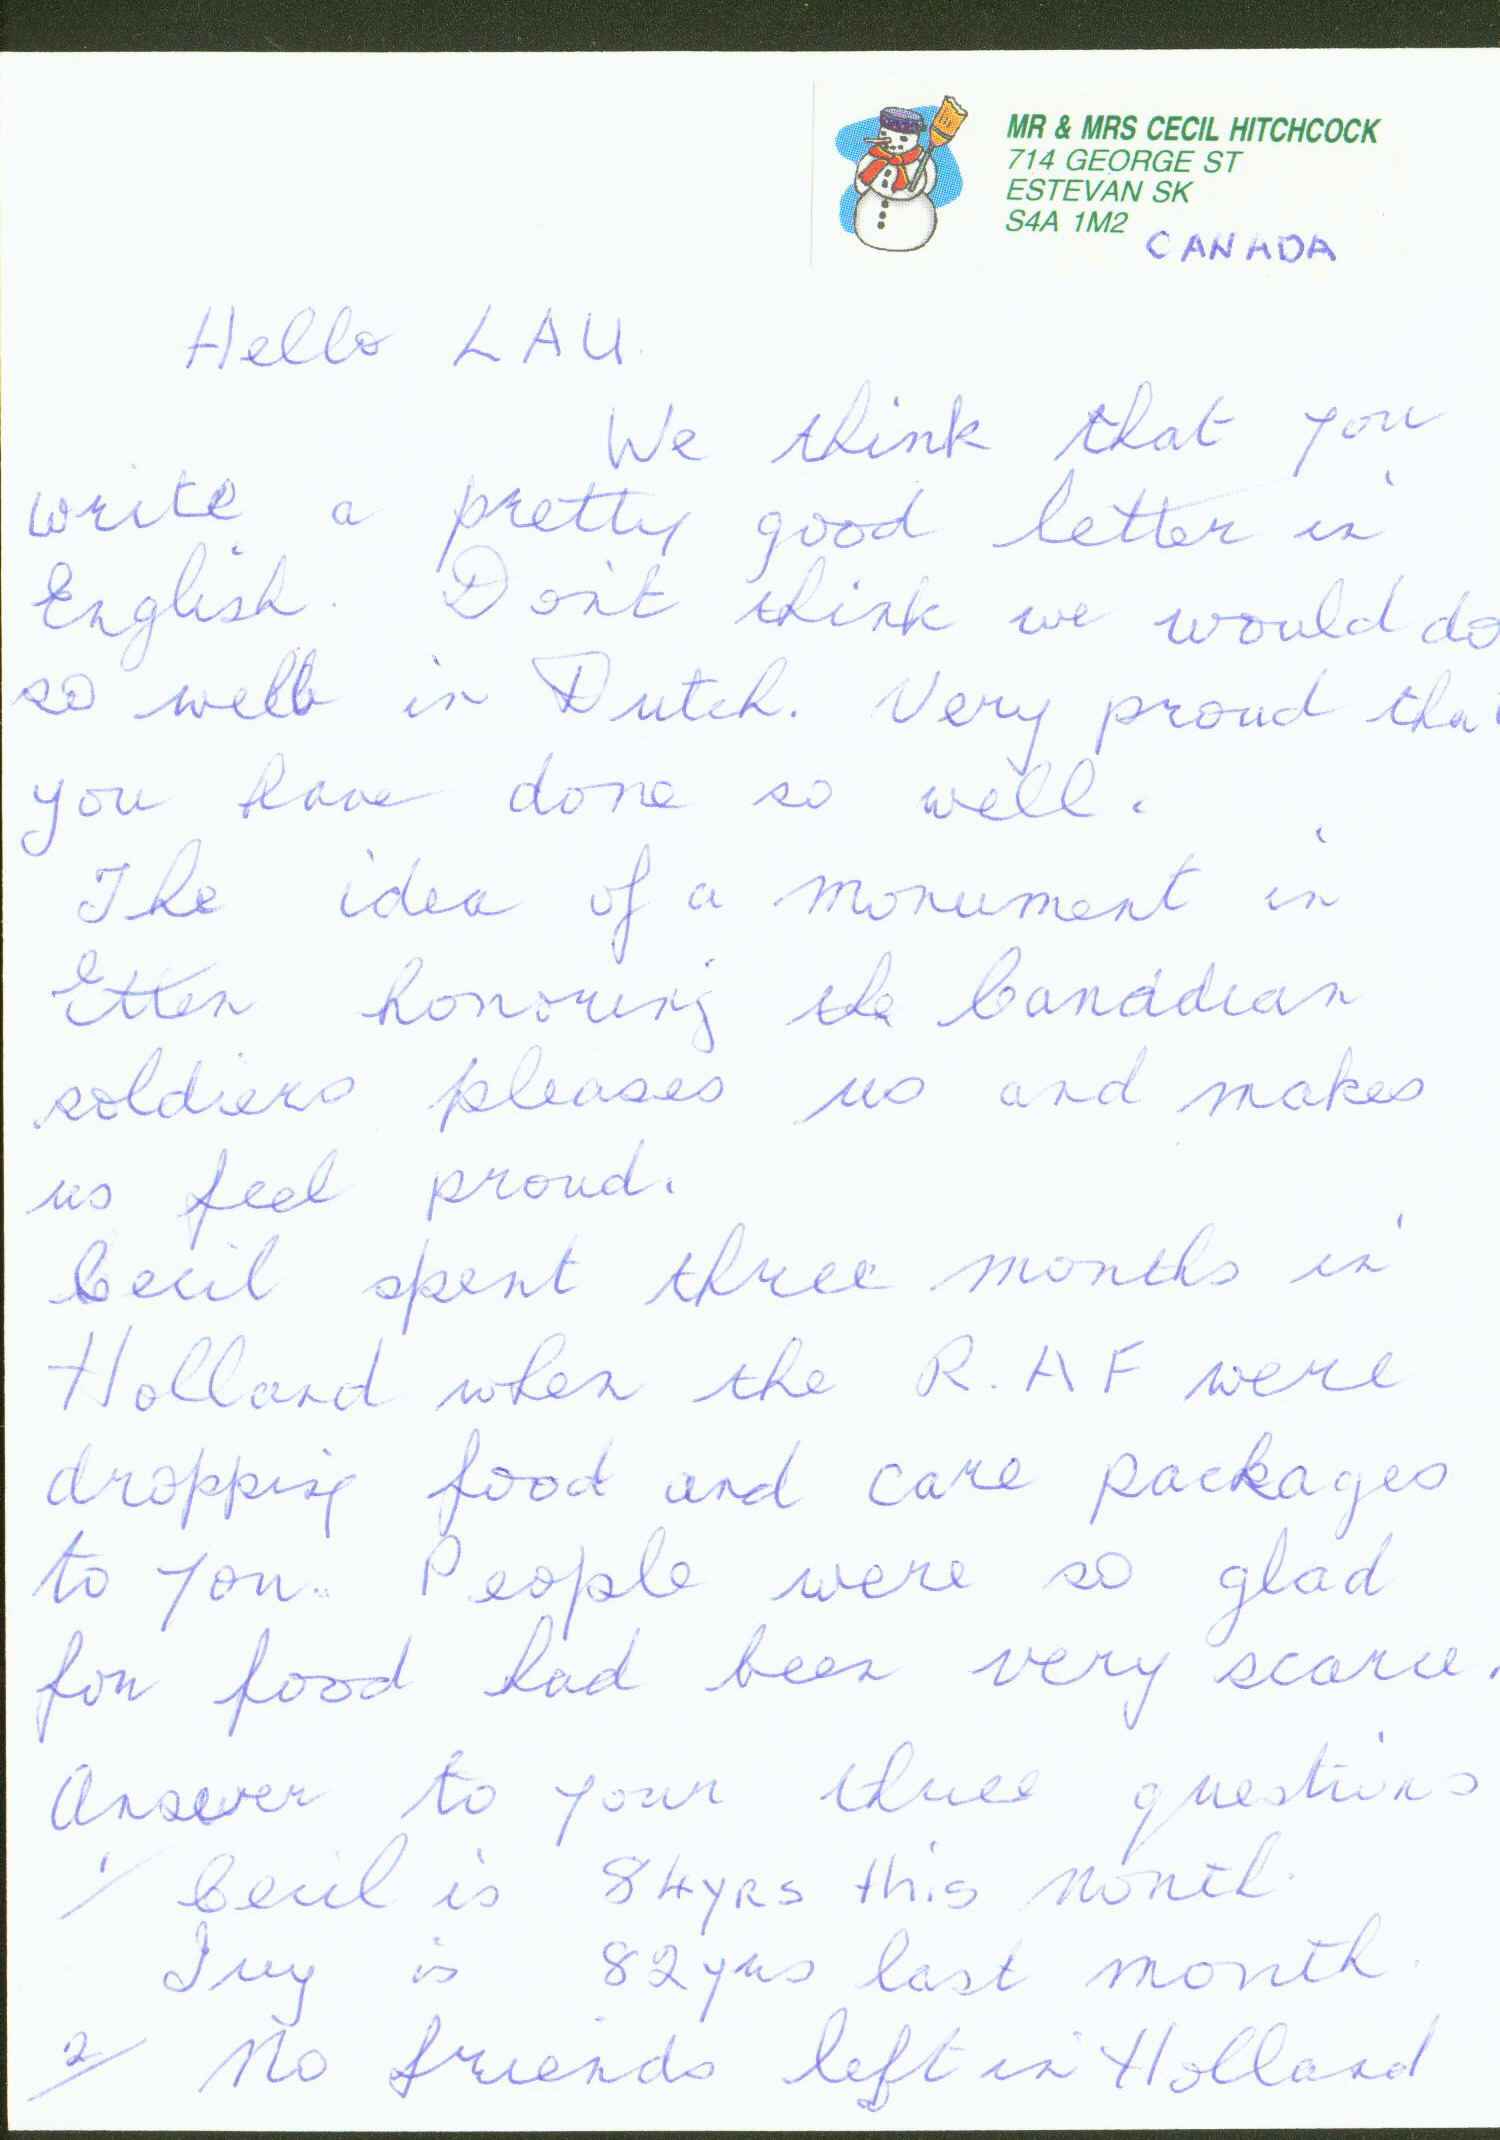 MR & MRS CECIL HITCHCOCK
714 GEORGE ST
ESTEVAN SK
S4A 1M2
CANADA
Hello LAU.
We think that you
write a pretty good letter in
English. Don't think we would do
so well in Dutch. Very proud that
you have done so well.
The idea of a monument in
Etten honoring the Canadian
soldiers pleases us and makes
us feel proud.
Cecil spent three months in
Holland when the R.A F were
dropping food and care packages
to you. People were so glad
for food had been very scarce.
Answer to your three questions
1/ Cecil is 84yrs this month.
Ivy is 82yrs last month.
2/ No friends left in Holland